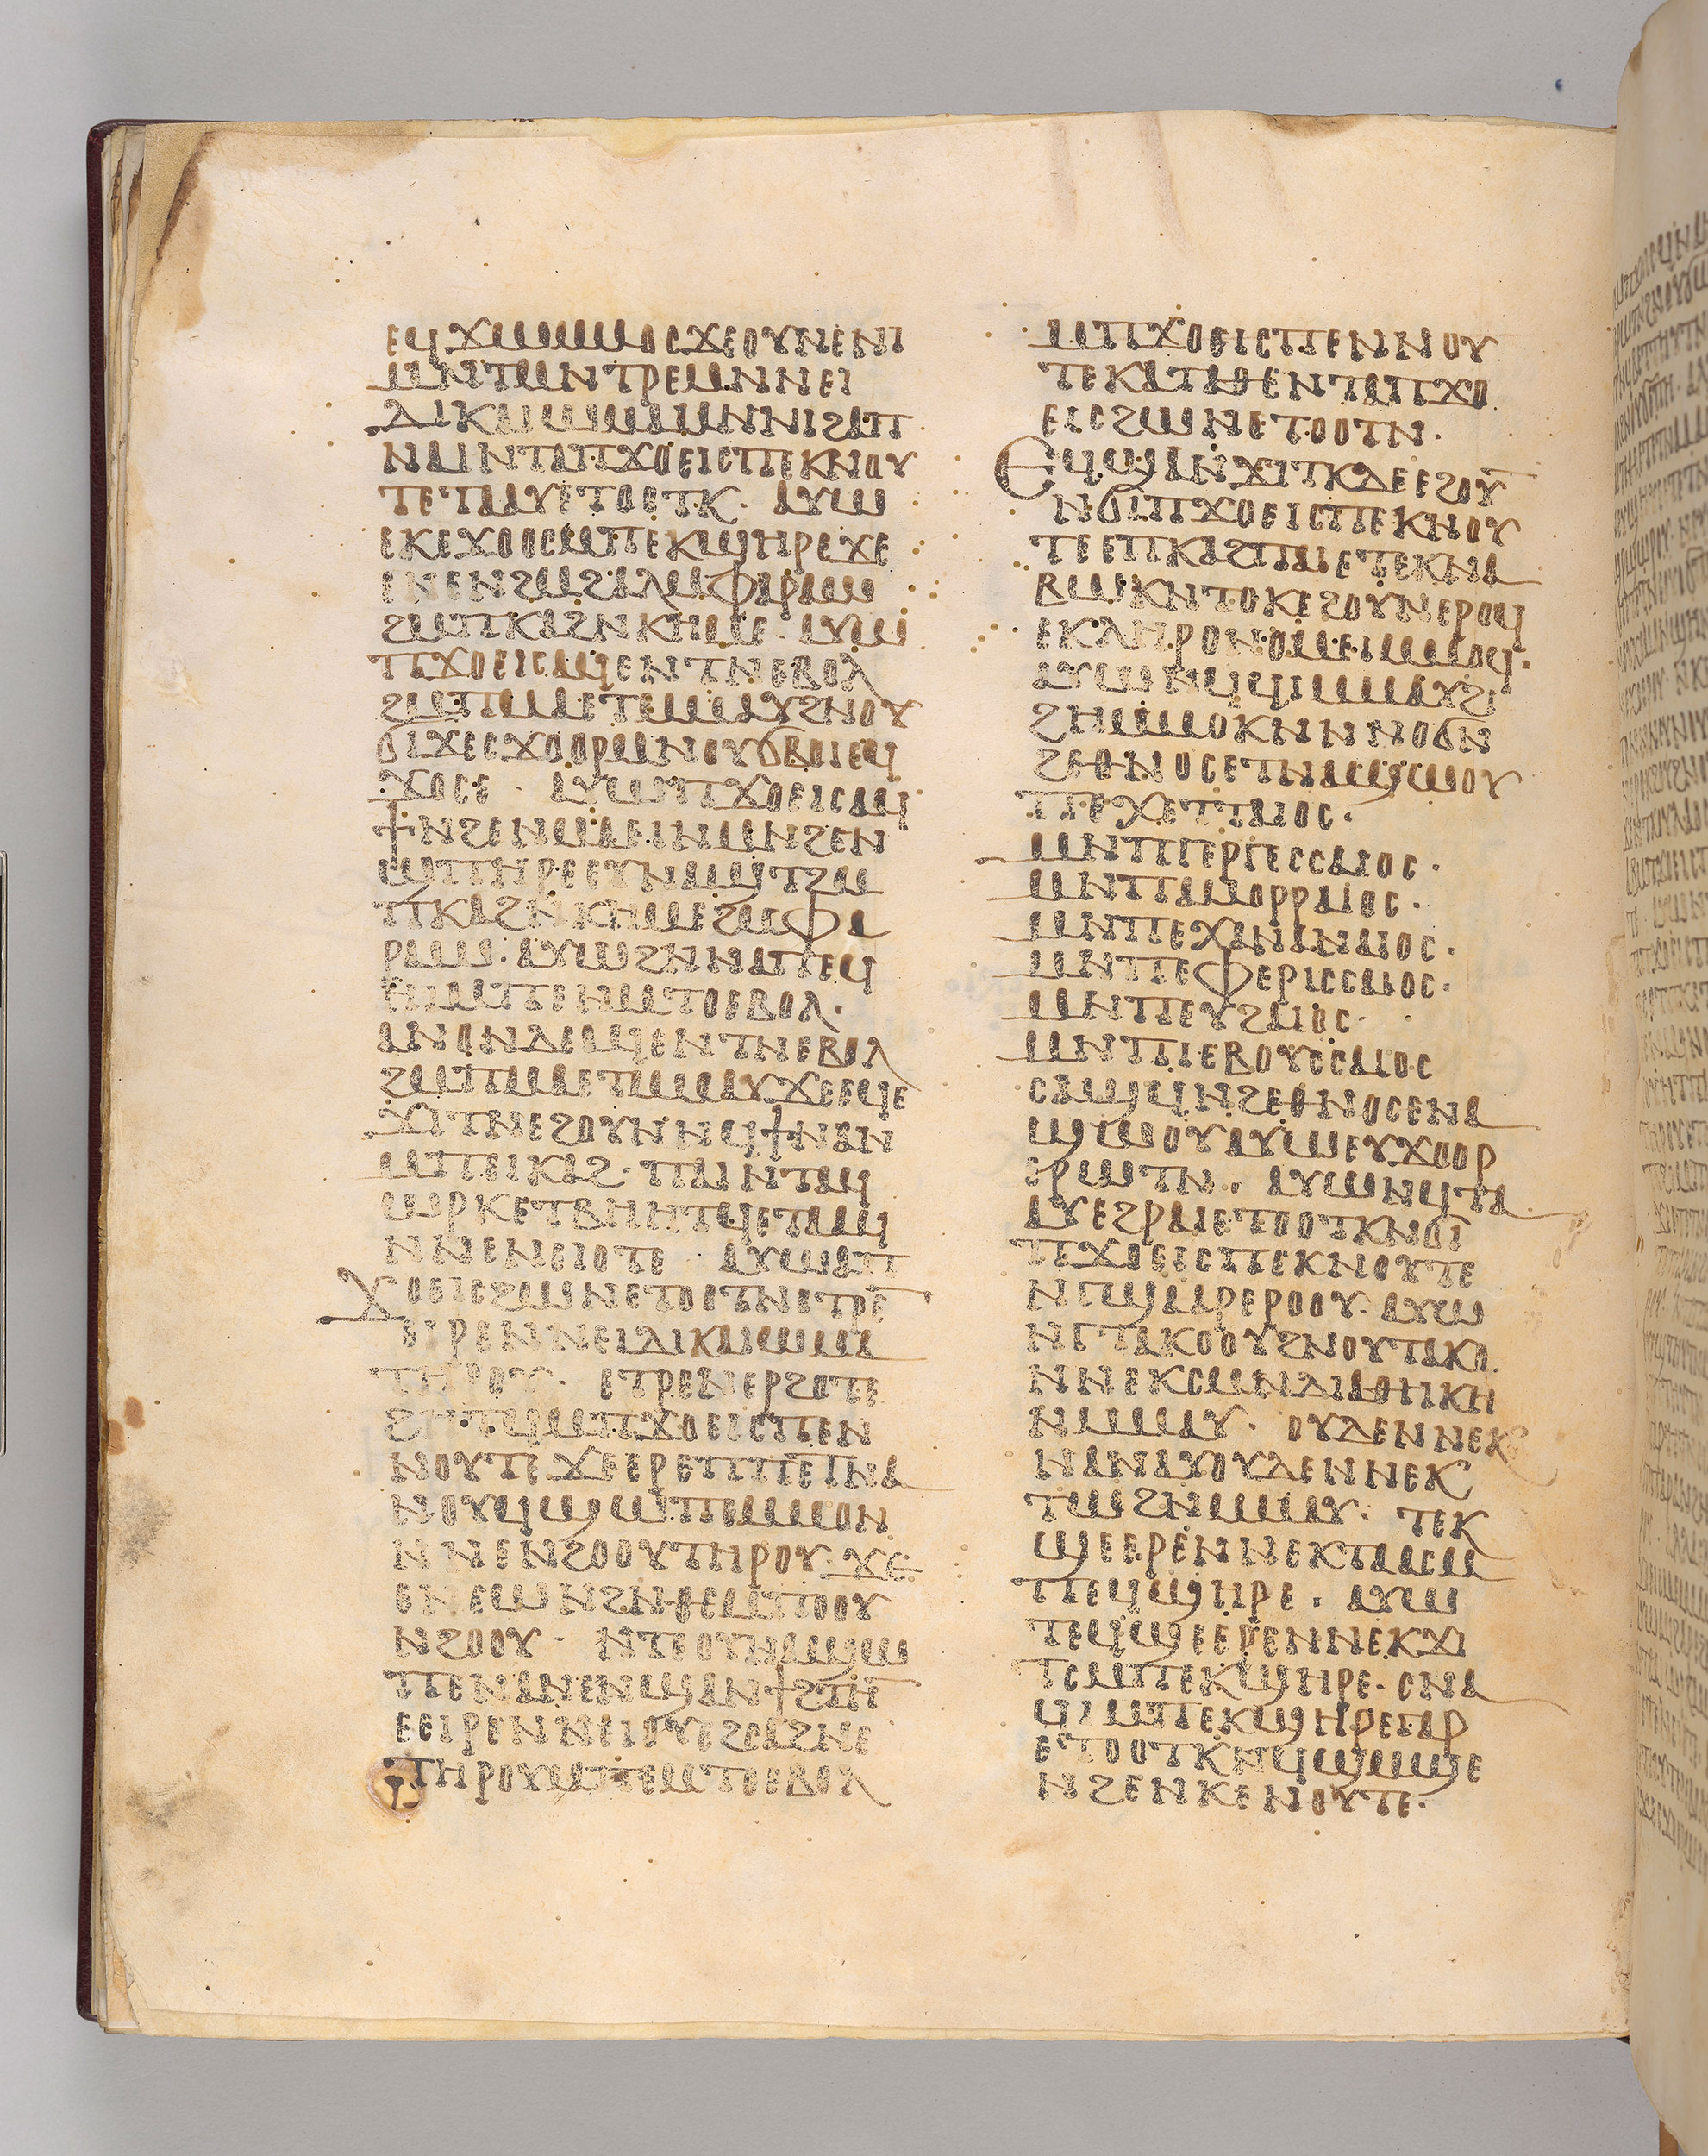 ⲉϥϫⲱⲙⲙⲟⲥϫⲉⲟⲩⲛⲉⲛⲓ
ⲙⲛⲧⲙⲛⲧⲣⲉⲙⲛⲛⲉⲓ
ⲇⲓⲕⲁⲓⲱⲙⲁⲙⲛⲛⲓϩⲁⲡ
ⲛⲁⲓⲛⲧⲁⲡϫⲟⲉⲓⲥⲡⲉⲕⲛⲟⲩ
ⲧⲉⲧⲁⲁⲩⲉⲧⲟⲟⲧⲕ· ⲁⲩⲱ
ⲉⲕⲉϫⲟⲟⲥⲙⲡⲉⲕϣⲏⲣⲉϫⲉ
ⲉⲛⲉⲛϩⲙϩⲁⲗⲙⲫⲁⲣⲁⲱ
ϩⲙⲡⲕⲁϩⲛⲕⲏⲙⲉ· ⲁⲩⲱ
ⲡϫⲟⲉⲓⲥⲁϥⲉⲛⲧⲛⲉⲃⲟⲗ
ϩⲙⲡⲙⲁⲉⲧⲙⲙⲁⲩϩⲛⲟⲩ
ϭⲓϫⲉⲥϫⲟⲟⲣⲙⲛⲟⲩϭⲃⲟⲓⲉϥ
ϫⲟⲥⲉ· ⲁⲩⲱⲡϫⲟⲉⲓⲥⲁϥ
ϯⲛϩⲉⲛⲙⲁⲉⲓⲛⲙⲛϩⲉⲛ
ϣⲡⲏⲣⲉⲉⲩⲛⲁϣⲧϩⲙ
ⲡⲕⲁϩⲛⲕⲏⲙⲉϩⲙⲫⲁ
ⲣⲁⲱ· ⲁⲩⲱϩⲛⲛⲁⲡⲉϥ
ⲏⲓⲙⲡⲉⲛⲙⲧⲟⲉⲃⲟⲗ·
ⲁⲛⲟⲛⲇⲉⲁϥⲉⲛⲧⲛⲉⲃⲟⲗ
ϩⲙⲡⲙⲁⲉⲧⲙⲙⲁⲩϫⲉⲉϥⲉ
ϫⲓⲧⲛⲉϩⲟⲩⲛⲛϥϯⲛⲁⲛ
ⲙⲡⲉⲓⲕⲁϩ· ⲡⲁⲓⲛⲧⲁϥ
ⲱⲣⲕⲉⲧⲃⲏⲏⲧϥⲉⲧⲁⲁϥ
ⲛⲛⲉⲛⲉⲓⲟⲧⲉ· ⲁⲩⲱⲁⲡ
ϫⲟⲉⲓⲥϩⲱⲛⲉⲧⲟⲟⲧⲛⲉⲧⲣⲉ
ⲉⲓⲣⲉⲛⲛⲉⲓⲇⲓⲕⲁⲓⲱⲙⲁ
ⲧⲏⲣⲟⲩ· ⲉⲧⲣⲉⲛⲉⲣϩⲟⲧⲉ
ϩⲏⲧϥⲙⲡϫⲟⲉⲓⲥⲡⲉⲛ
ⲛⲟⲩⲧⲉϫⲉⲉⲣⲉⲡⲡⲉⲧⲛⲁ
ⲛⲟⲩϥϣⲱⲡⲉⲙⲙⲟⲛ
ⲛⲛⲉⲛϩⲟⲟⲩⲧⲏⲣⲟⲩ· ϫⲉ
ⲉⲛⲉⲱⲛϩⲛⲑⲉⲙⲡⲟⲟⲩ
ⲛϩⲟⲟⲩ· ⲛⲧⲉⲟⲩⲛⲁϣⲱ
ⲡⲉⲛⲁⲛⲉⲛϣⲁⲛϯϩⲧⲏ
ⲉⲉⲓⲣⲉⲛⲛⲉⲓⲟⲩⲉϩⲥⲁϩⲛⲉ
ⲧⲏⲣⲟⲩⲙⲡⲉⲙⲧⲟⲉⲃⲟⲗ
ⲙⲡϫⲟⲉⲓⲥⲡⲉⲛⲛⲟⲩ
ⲧⲉⲕⲁⲧⲁⲑⲉⲛⲧⲁⲡϫⲟ
ⲉⲓⲥϩⲱⲛⲉⲧⲟⲟⲧⲛ·
ⲉϥϣⲁⲛϫⲓⲧⲕⲇⲉⲉϩⲟⲩ
ⲛϭⲓⲡϫⲟⲉⲓⲥⲡⲉⲕⲛⲟⲩ
ⲧⲉⲉⲡⲕⲁϩⲡⲁⲓⲉⲧⲉⲕⲛⲁ
ⲃⲱⲕⲛⲧⲟⲕⲉϩⲟⲩⲛⲉⲣⲟϥ
ⲉⲕⲗⲏⲣⲟⲛⲟⲙⲉⲓⲙⲙⲟϥ·
ⲁⲩⲱⲛϥϥⲓⲙⲙⲁⲩϩⲓ
ϩⲏⲙⲙⲟⲕⲛⲛⲛⲟϭⲛ
ϩⲉⲑⲛⲟⲥⲉⲧⲛⲁϣⲱⲟⲩ
ⲡⲉⲭⲉⲧⲧⲁⲓⲟⲥ·
ⲙⲛⲡⲅⲉⲣⲅⲉⲥⲥⲁⲓⲟⲥ·
ⲙⲛⲡⲁⲙⲟⲣⲣⲁⲓⲟⲥ·
ⲙⲛⲡⲉⲭⲁⲛⲁⲛⲁⲓⲟⲥ·
ⲙⲛⲡⲉⲫⲉⲣⲓⲥⲥⲁⲓⲟⲥ·
ⲙⲛⲡⲉⲩϩⲁⲓⲟⲥ·
ⲙⲛⲡⲓⲉⲃⲟⲩⲥⲥⲁⲓⲟⲥ
ⲥⲁϣϥⲛϩⲉⲑⲛⲟⲥⲉⲛⲁ
ϣⲱⲟⲩⲁⲩⲱⲉⲩϫⲟⲟⲣ
ⲉⲣⲱⲧⲛ· ⲁⲩⲱⲛϥⲧⲁ
ⲁⲩⲉϩⲣⲁⲓⲉⲧⲟⲟⲧⲕⲛϭⲓ
ⲡⲉϫⲟⲉⲓⲥⲡⲉⲕⲛⲟⲩⲧⲉ
ⲛⲅϣⲁⲁⲣⲉⲣⲟⲟⲩ· ⲁⲩⲱ
ⲛⲅⲧⲁⲕⲟⲟⲩϩⲛⲟⲩⲧⲁⲕⲟ·
ⲛⲛⲉⲕⲥⲙⲛⲇⲓⲁⲑⲏⲕⲏ
ⲛⲙⲙⲁⲩ· ⲟⲩⲇⲉⲛⲛⲉⲕ
ⲛⲁⲛⲁⲩⲟⲩⲇⲉⲛⲛⲉⲕ
ⲧⲱϩⲛⲙⲙⲁⲩ· ⲧⲉⲕ
ϣⲉⲉⲣⲉⲛⲛⲉⲕⲧⲁⲁⲥⲙ
ⲡⲉϥϣⲏⲣⲉ· ⲁⲩⲱ
ⲧⲉϥϣⲉⲉⲣⲉⲛⲛⲉⲕϫⲓ
ⲧⲥⲙⲡⲉⲕϣⲏⲣⲉ· ⲥⲛⲁ
ϥⲓⲙⲡⲉⲕϣⲏⲣⲉⲅⲁⲣ
ⲉⲧⲟⲟⲧⲕⲛϥϣⲙϣⲉ
ⲛϩⲉⲛⲕⲉⲛⲟⲩⲧⲉ·